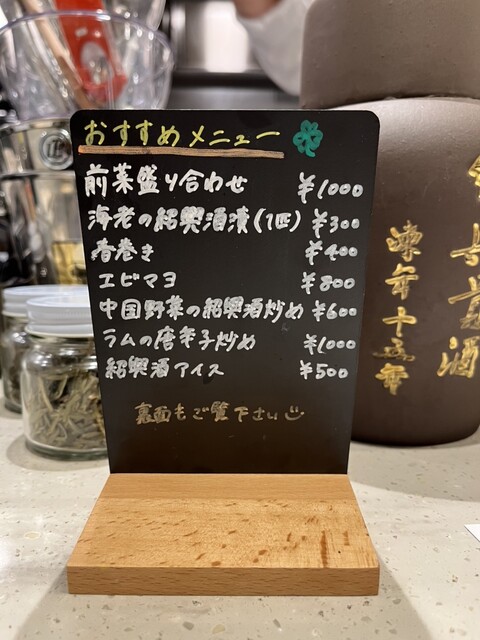 おすすめメニュー
前菜盛り合わせ ¥1000
海老の紹興酒漬(1匹) ¥300
春巻き ¥400
エビマヨ ¥800
中国野菜の紹興酒炒め ¥600
ラムの唐辛子炒め ¥1000
紹興酒アイス ¥500
裏面もご覧下さい
陳年十五年
酒